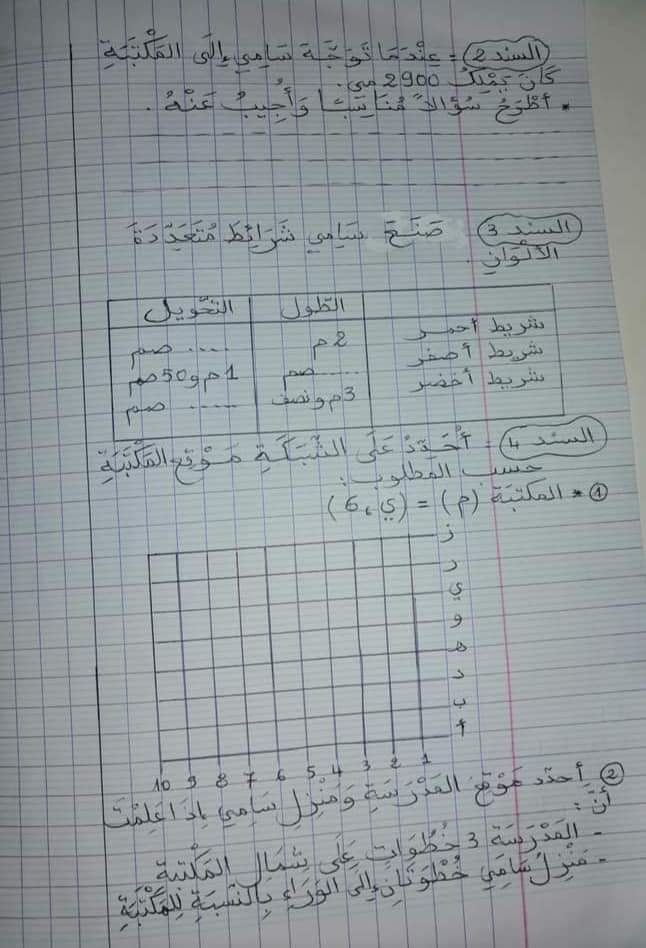 السند 2 = عِنْدَمَا تَوَجَّهَ سَامِي إِلَى المَكْتَبَةِ
كَانَ يَمْلِكُ 2900 مي.
* أَطْرَحُ سُؤَالاً مُنَاسِبًا وَأُجِيبُ عَنْهُ.
السند 3 صَنَعَ سَامِي شَرَائِطَ مُتَعَدِّدَةَ
الأَلْوَانِ.
الطّول التحّويل
شريط أحمر 2م ..... صم
شريط أصفر ...... صم 1م و50صم
شريط أخضر 3م ونصف ..... صم
السند 4 - أُحَدِّدُ عَلَى الشَّبَكَةِ مَوْقِعَ المَكْتَبَةِ
حسب المطلوب:
① * المكتبة (م) = (ي، 6)
ز
ر
ي
و
ه
د
ب
أ
10 9 8 7 6 5 4 3 2 1
② أحدّد مَوْقِعَ المَدْرَسَةِ وَمَنْزِلِ سَامِي إِذَا عَلِمْتَ
أَنَّ:
- المَدْرَسَة 3 خُطُوَاتٍ عَلَى شِمَالِ المَكْتبة
- مَنْزِلُ سَامِي خُطْوَتَانِ إِلَى الوَرَاءِ بِالنّسْبَةِ لِلْمَكْتَبَةِ